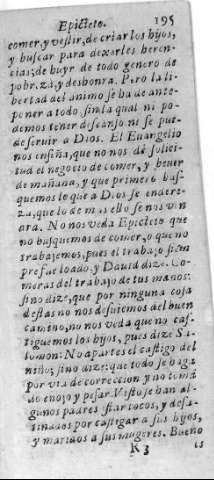 Epicteto. 195
comer, y vestir, de criar los hijos,
y buscar para dexarles heren-
cias; de huyr de todo genero de
pobreza, y desbonra. Pero la li-
bertad del animo se ha de ante-
poner a todo, sin la qual ni po-
demos tener descanso ni se pue-
de seruir a Dios. El Euangelio
nos enseña, que no nos dè solici-
tud el negocio de comer, y beuer
de mañana, y que primero bus-
quemos lo que a Dios se endere-
za, que lo demas ello se nos ven
ara. No nos veda Epicteto que
no busquemos de comer, o que no
trabajemos, pues el trabajo siem
pre fue loado, y Dauid dize: Co-
meras del trabajo de tus manos:
sino dize, que por ninguna cosa
destas no nos desuiemos del buen
camino, no nos veda que no cas-
tiguemos los hijos, pues dize Sa-
lomon: No apartes el castigo del
niño; sino dize: que todo se haga
por via de correccion y no toman
do enojo y pesar. Visto se han al-
gunos padres estar locos, y desa-
tinados por castegar a sus hijos,
y maridos a sus mugeres. Bueno
K 3 es